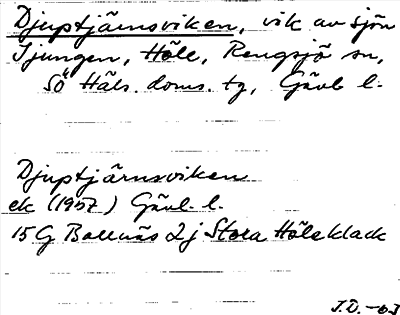 Djuptjärnsviken, vik av sjön
Ljungen, Höle, Rengsjö sn,
SÖ Häls. doms. tg, Gävl l.
Djuptjärnsviken
ek (1957) Gävl. l.
15 G Bollnäs 2 j Stora Höleklack
J.D. -63